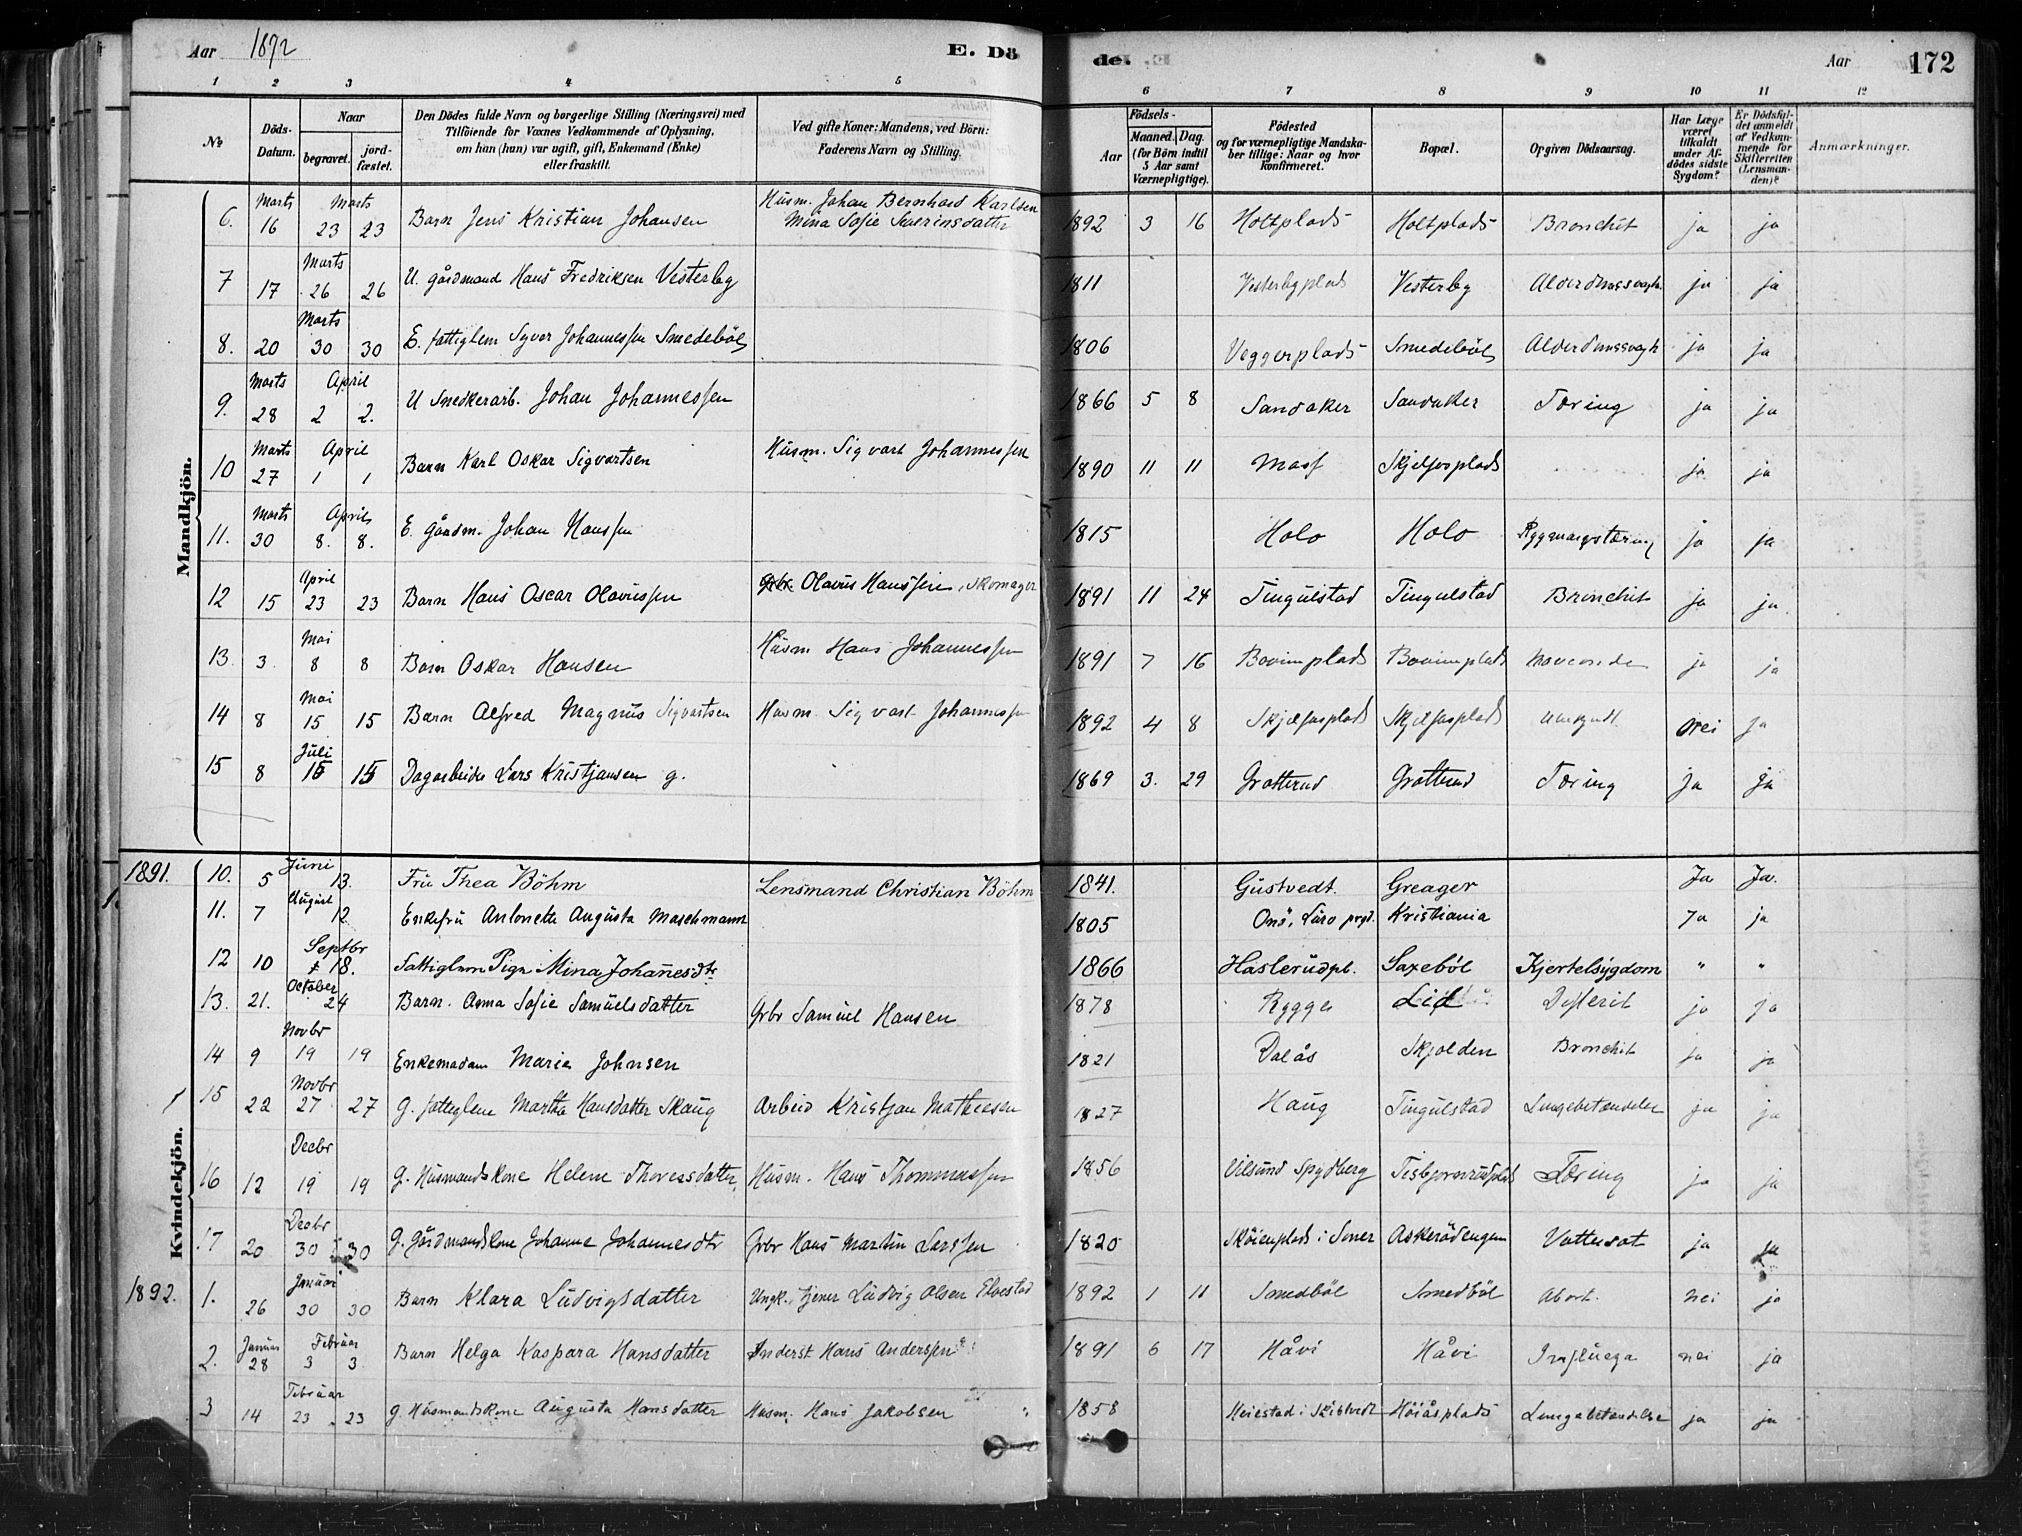 Aar 1892 E. Dö de. Aar 172
1 2 3 4 5 6 7 8 9 10 11 12
№ Döds-Datum. Naar begravet. jord-fæstet. Den Dödes fulde Navn og borgerlige Stilling (Næringsvei) med Tilföiende for Voxnes Vedkommende af Oplysning, om han (hun) var ugift, gift, Enkemand (Enke) eller fraskilt. Ved gifte Koner: Mandens, ved Börn: Faderens Navn og Stilling. Födsels- Aar Maaned. Dag. (for Börn indtil 5 Aar samt Værnepligtige). Födested og for værnepligtige Mandska-ber tillige: Naar og hvor konfirmeret. Bopæl. Opgiven Dödsaarsag. Har Læge været tilkaldt under Af-dödes sidste Sygdom? Er Dödsfal-det anmeldt af Vedkom-mende for Skifteretten (Lensman-den)? Anmærkninger.
Mandkjön.
6. Marts 16 Marts 23 23 Barn Jens Kristian Johansen Husm. Johan Bernhard Karlsen Mina Sofie Severinsdatter 1892 3 16 Holtplads Holtplads Bronchit ja ja
7 17 Marts 26 26 U. gårdmand Hans Fredriksen Vesterby 1811 Vesterbyplads Vesterby Alderdomssvagh. ja ja
8. 20 Marts 30 30 E. fattiglem Syver Johannessen Smedeböl 1806 Veggerplads Smedeböl Alderdomssvagh ja ja
9. Marts 28 April 2 2. U Snedkerarb. Johan Johannessen 1866 5 8 Sandaker Sandaker Tæring ja ja
10 Marts 27 April 1 1 Barn Karl Oskar Sigvartsen Husm. Sigvart Johannessen 1890 11 11 Moss Skjelfosplads ja ja
11. Marts 30 April 8. 8. E. gårdm. Johan Hanssen 1815 Holo Holo Rygmargstæring ja ja
12 15 April 23 23 Barn Hans Oscar Olavussen Olavus Hanssen, Skomager 1891 11 24 Tingulstad Tingulstad Bronchit ja ja
13. 3. Mai 8 8 Barn Oskar Hansen Husm Hans Johannessen 1891 7 16 Bovimplads Bovimplads ja ja
14 8 Mai 15 15 Barn Alfred Magnus Sigvartsen Husm. Sigvart Johannessen 1892 4 8 Skjelfosplads Skjelfosplads Ubekjendt nei ja
15 8 Juli 15 15 Dagarbeider Lars Kristjansen g. 1869 3. 29 Gratterud Gratterud Tæring ja ja
Kvindekjön.
1891. 10. 5 Juni 13. Fru Thea Böhm Lensmand Christian Böhm 1841. Gustvedt. Greager Ja Ja.
11. 7 August 12 Enkefru Antonette Augusta Maschmann 1805 Kristiania Ja ja
12 10 Septbr 18. Fattiglem Pige Mina Johanesdtr 1866 Haslerudpl. Saxeböl Kjertelsygdom " "
13. 21. October 24 Barn. Anna Sofie Samuelsdatter Grbr Samuel Hansen 1878 Rygge Lid Difterit ja ja
14 9 Novbr 19 19 Enkemadam Maria Johnsen 1821 Dalås Skjolden Bronchit ja ja
15 22 Novbr 27 27 g. fattiglem Martha Hansdatter Skaug Arbeid Kristjan Mathiesen 1827 Haug Tingulstad Lungebetændelse ja ja
16 12 Decbr 19 19 G. Husmandskone Helene Thorersdatter. Husm. Hans Thommassen 1856 Spydberg Tisbjornrudplads Tæring ja ja
17 20 Decbr 30 30 G. Gårdmandskone Johanne Johannesdtr Grbr Hans Martin Larssen 1820 Sköienplads i Soner Askerödengen Vattersot ja ja
1892. 1. 26 Januar 30 30 Barn Klara Ludvigsdatter Ungk. tjener Ludvig Olsen Elvestad 1892 1 11 Smedböl Smedböl Abort. nei ja
2. Januar 28 Februar 3 3. Barn Helga Kaspara Hansdatter Inderst Hans Anderssen 1891 6 17 Håvi Håvi nei ja
3 14 Februar 23 23 g. Husmandskone Augusta Hansdatter Husm. Hans Jakobsen 1858 Heiestad i Skibtvedt Höiåsplads Lungebetændelse ja ja